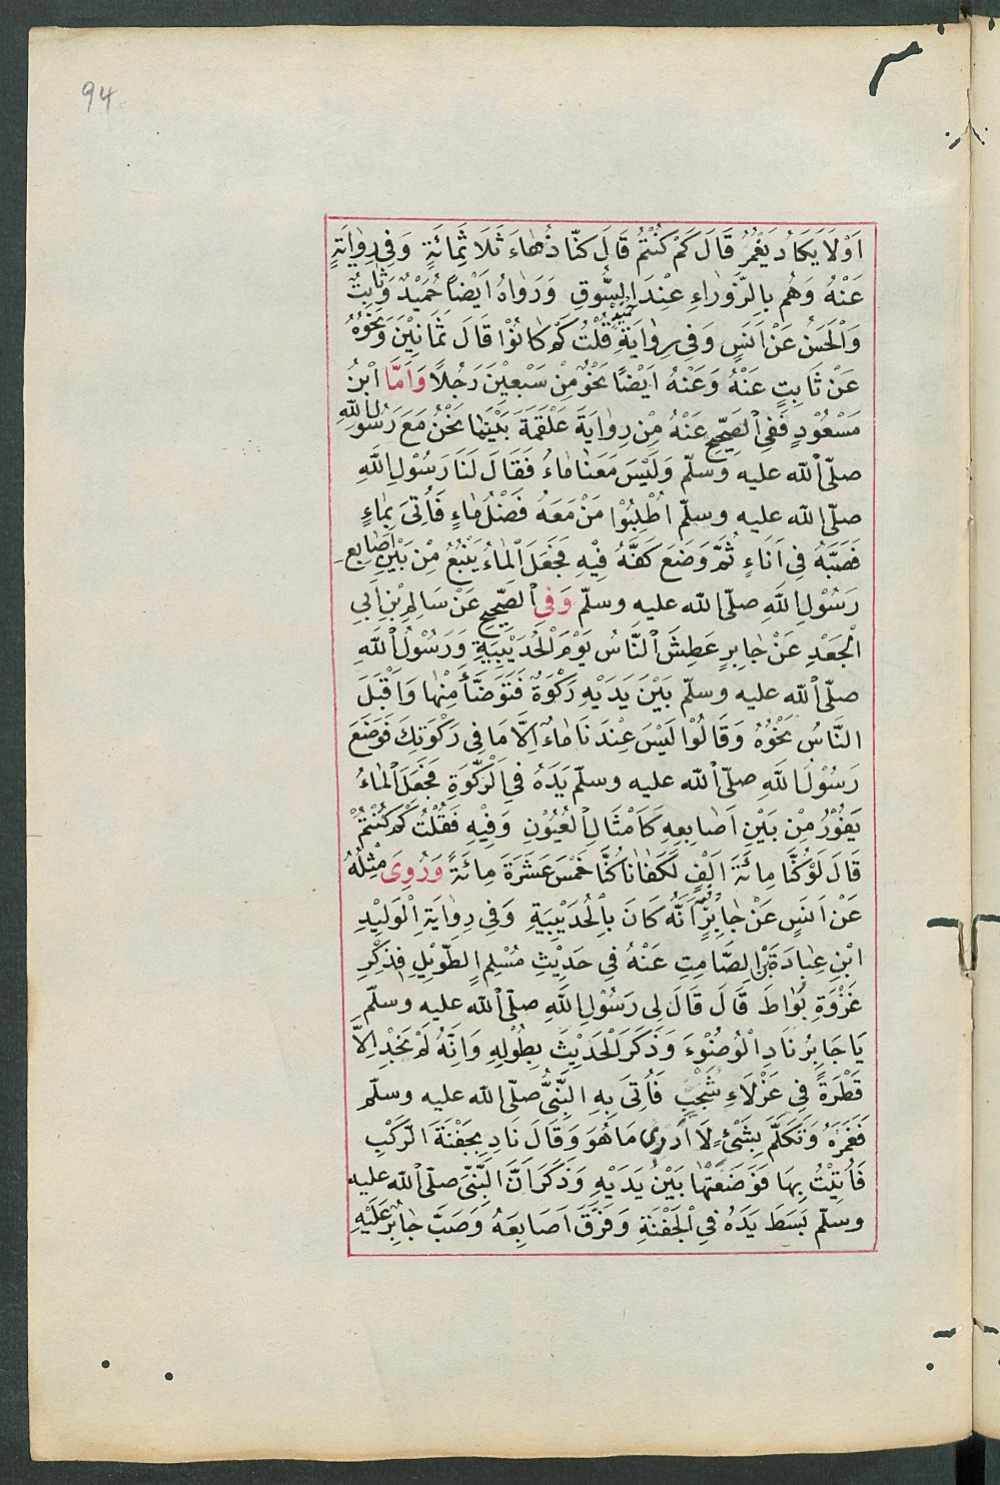 94
اَوْلَا يَكَادُ يَغْمُرُ قَالَ كَمْ كُنْتُمْ قَالَ كُنَّا زُهَاءَ ثَلَاثِمِائَةٍ وَفِي رِوَايَةٍ
عَنْهُ وَهُم بِالزَّوْرَاءِ عِنْدَ السُّوقِ وَرَوَاهُ اَيْضًا حُمَيْدٌ وَثَابِتٌ
وَالْحَسَنُ عَنْ اَنَسٍ وَفِي رِوَايَةِ حُمَيْدٍ قُلْتُ كَمْ كَانُوْا قَالَ ثَمَانِيْنَ وَنَحْوُهُ
عَنْ ثَابِتٍ عَنْهُ وَعَنْهُ اَيْضًا نَحْوٌ مِنْ سَبْعِيْنَ رَجُلًا وَاَمَّا ابْنُ
مَسْعُوْدٍ فَفِي الصَّحِيْحِ عَنْهُ مِنْ رِوَايَةَ عَلْقَمَةَ بَيْنَمَا نَحْنُ مَعَ رَسُوْلِ اللهِ
صلّى الله عليه وسلّم وَلَيْسَ مَعَنَا مَاءٌ فَقَالَ لَنَا رَسُوْلُ اللهِ
صلّى الله عليه وسلّم اُطْلُبُوْا مَنْ مَعَهُ فَضْلُ مَاءٍ فَاُتِيَ بِمَاءٍ
فَصَبَّهُ فِي اِنَاءٍ ثُمَّ وَضَعَ كَفَّهُ فِيْهِ فَجَعَلَ الْمَاءُ يَنْبُعُ مِنْ بَيْنِ اَصَابِعِ
رَسُوْلِ اللهِ صلّى الله عليه وسلّم وَفِي الصَّحِيْحِ عَنْ سَالِمِ بْنِ اَبِي
الْجَعْدِ عَنْ جَابِرٍ عَطِشَ النَّاسُ يَوْمَ الْحُدَيْبِيَةِ وَرَسُوْلُ اللهِ
صلّى الله عليه وسلّم بَيْنَ يَدَيْهِ رَكْوَةٌ فَتَوَضَّأَ مِنْهَا وَاَقْبَلَ
النَّاسُ نَحْوُهُ وَقَالُوْا لَيْسَ عِنْدَنَا مَاءٌ اِلَّا مَا فِي رَكْوَتِكَ فَوَضَعَ
رَسُوْلُ اللهِ صلّى الله عليه وسلّم يَدَهُ فِي الرَّكْوَةِ فَجَعَلَ الْمَاءُ
يَفُوْرُ مِنْ بَيْنِ اَصَابِعِهِ كَاَمْثَالِ الْعُيُوْنِ وَفِيْهِ فَقُلْتُ كَمْ كُنْتُمْ
قَالَ لَوْ كُنَّا مِائَةَ اَلْفٍ لَكَفَانَا كُنَّا خَمْسَ عَشَرَةَ مِائَةً وَرُوِيَ مِثْلُهُ
عَنْ اَنَسٍ عَنْ جَابِرٍ وَفِيْهِ اَنَّهُ كَانَ بِالْحُدَيْبِيَةِ وَفِي رِوَايَةِ الْوَلِيْدِ
ابْنِ عِبَادَةَ بْنِ الصَّامِتِ عَنْهُ فِي حَدِيْثِ مُسْلِمِ الطَّوِيْلِ فِي ذِكْرِ
غَزْوَةِ بُوَاطَ قَالَ قَالَ لِي رَسُوْلُ اللهِ صلّى الله عليه وسلّم
يَا جَابِرُ نَادِ الْوُضُوْءَ وَذَكَرَ الْحَدِيْثَ بِطُوْلِهِ وَاِنَّهُ لَمْ يَجِدْ اِلَّا
قَطْرَةً فِي عَزْلَاءِ شَجْبٍ فَاُتِيَ بِهِ النَّبِيُّ صلّى الله عليه وسلّم
فَغَمَزَهُ وَتَكَلَّمَ بِشَيْءٍ لَا اَدْرِي مَا هُوَ وَقَالَ نَادِ بِجَفْنَةِ الرَّكْبِ
فَاُتِيْتُ بِهَا فَوَضَعْتُهَا بَيْنَ يَدَيْهِ وَذَكَرَ اَنَّ النَّبِيَّ صلّى الله عليه
وسلّم بَسَطَ يَدَهُ فِي الْجَفْنَةِ وَفَرَّقَ اَصَابِعَهُ وَصَبَّ جَابِرٌ عَلَيْهِ